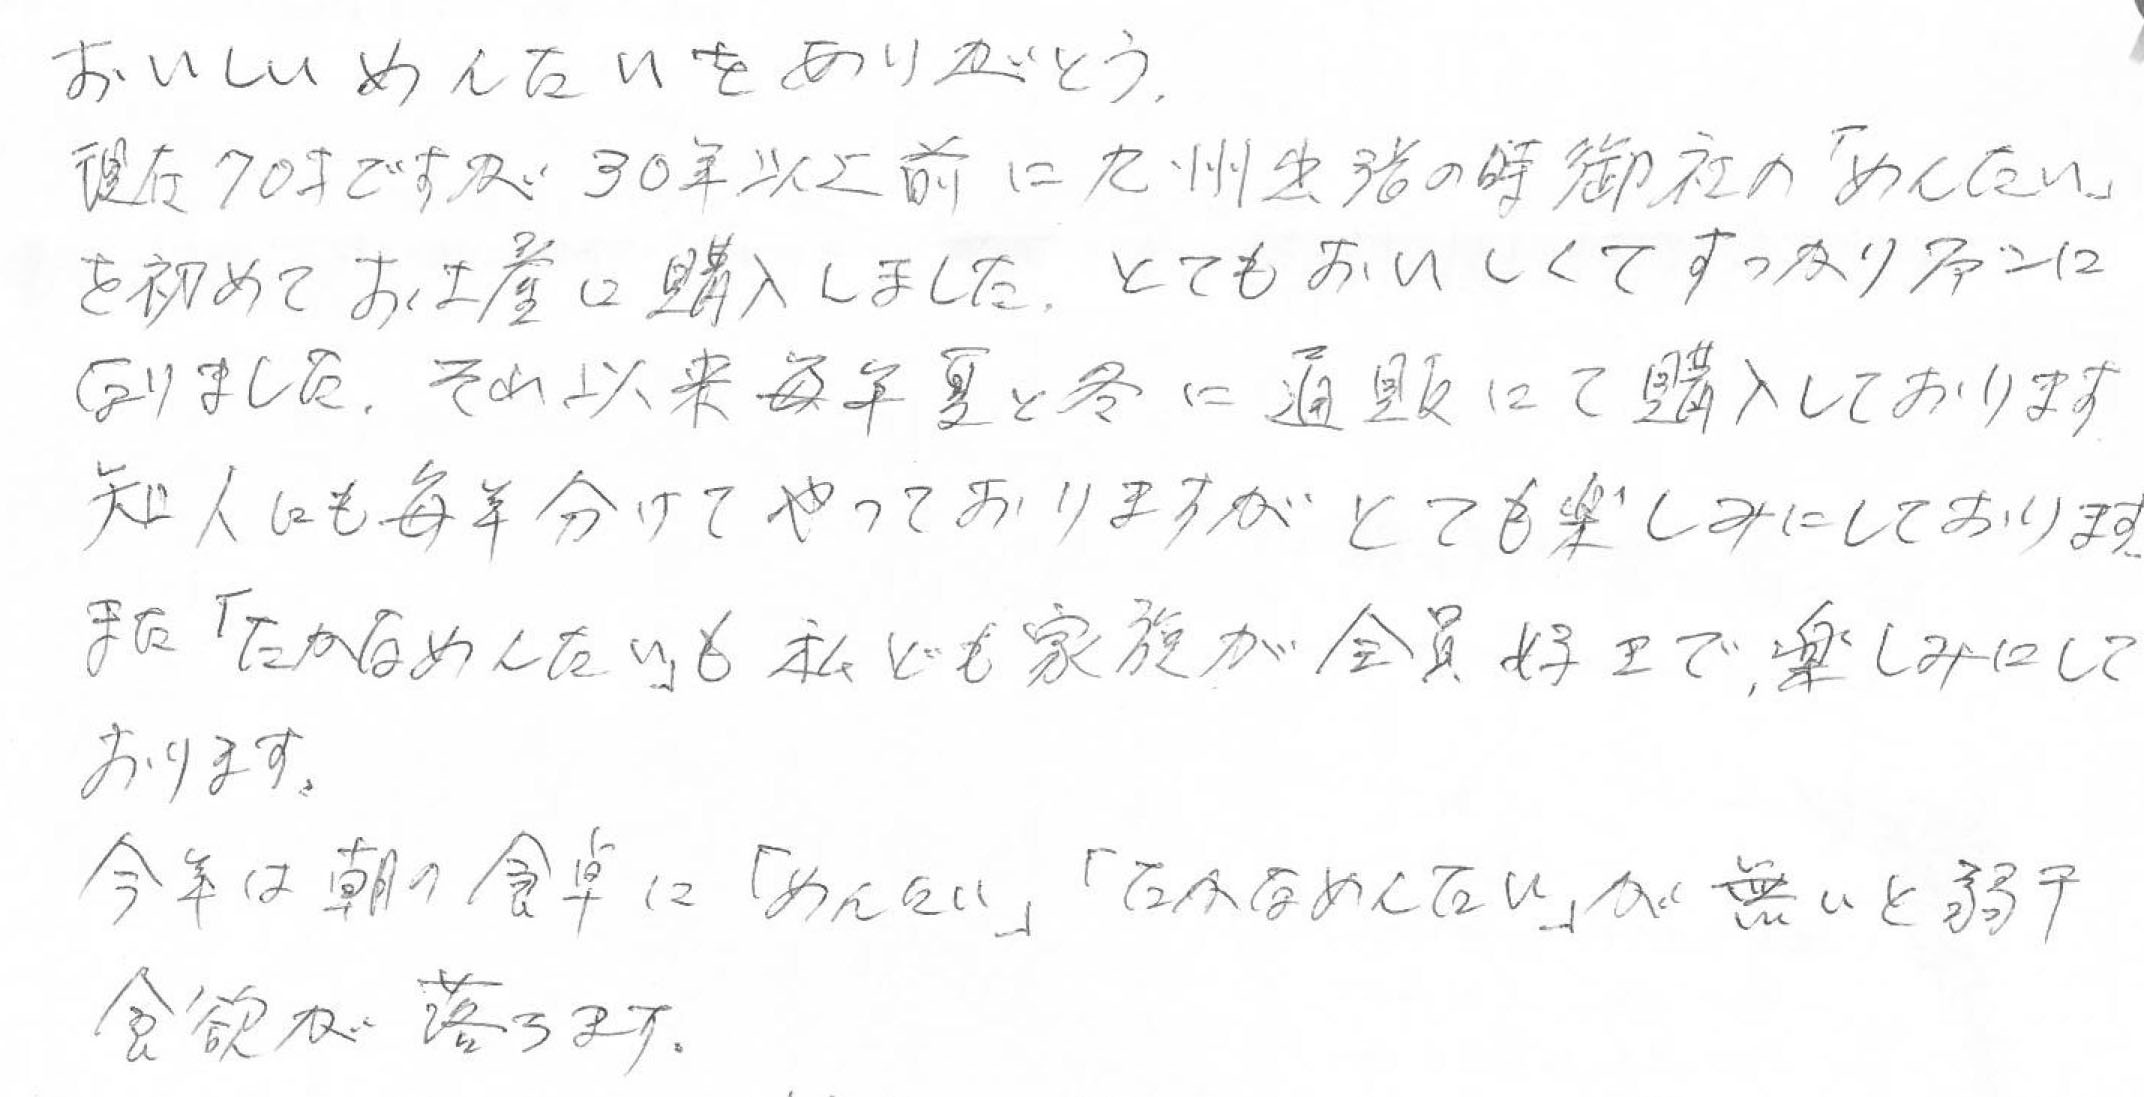 おいしいめんたいをありがとう.
現在70才ですが30年以上前に九州出張の時御社の「めんたい」
を初めてお土産に購入しました. とてもおいしくてすっかりファンに
なりました. それ以来毎年夏と冬に通販にて購入しております
知人にも毎年分けてやっておりますがとても楽しみにしております.
また「たかなめんたい」も私ども家族が全員好エで,楽しみにして
おります。
今年は朝の食卓に「めんたい」「たかなめんたい」が無いと弱干
食欲が落ちます。